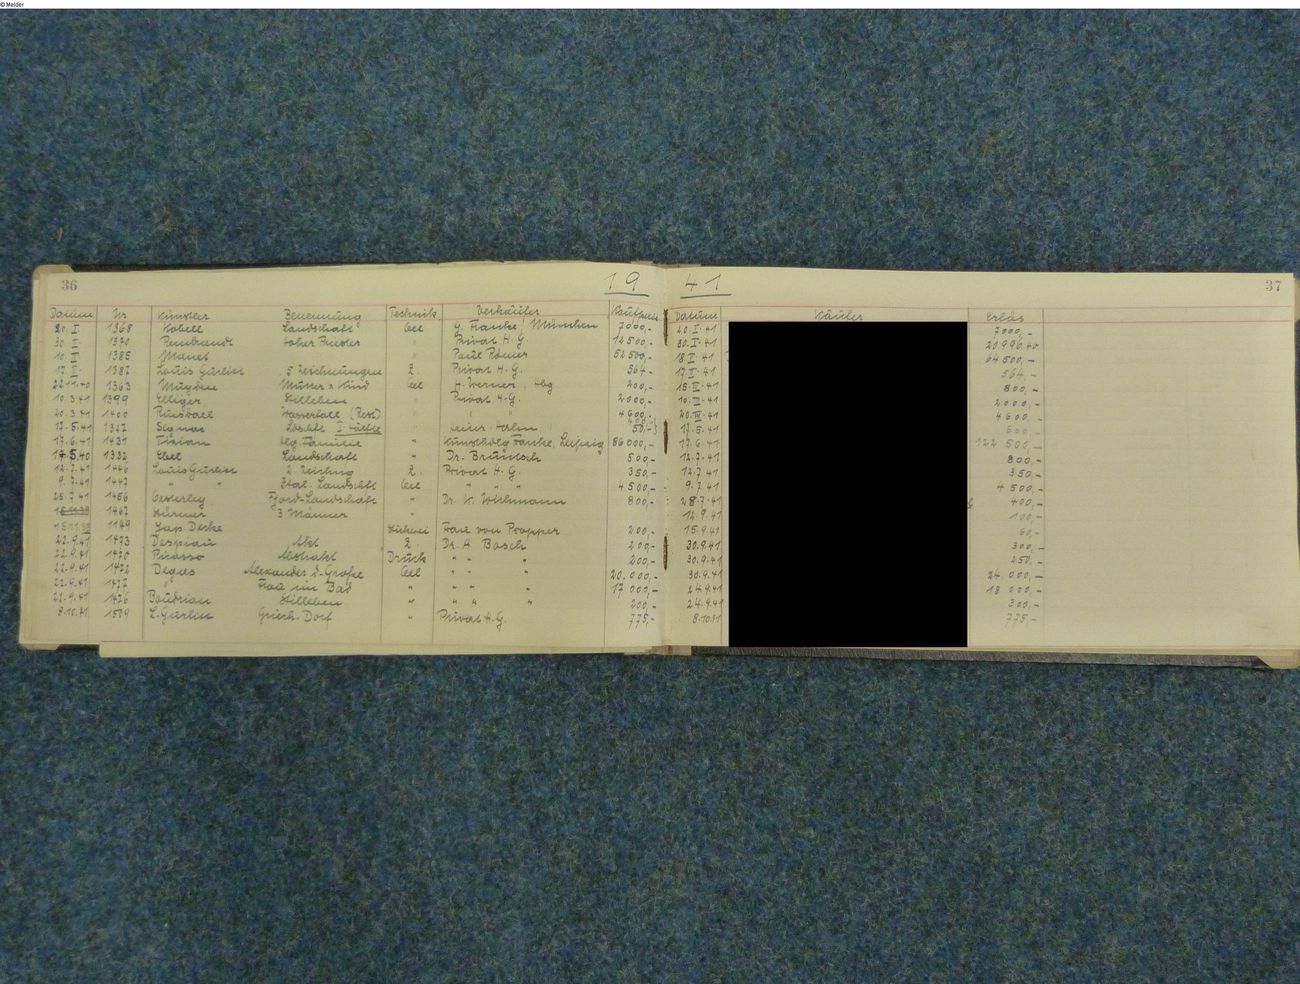 © Melder
36
19 41
37
Datum Nr Künstler Benennung Technik Verkäufer Kaufpreis Datum Käufer Erlös
20. I 1368 Kobell Landschaft Oel G. Franke, München 7000,- 20.I.41 7000,-
30. I 1370 Rembrandt Hoher Priester " Privat H.G. 12500,- 30.I.41 20990.40
10. II 1385 Manet " Paul Römer 52500,- 18.II.41 64500,-
17. II 1387 Louis Gurlitt 5 Zeichnungen Z. Privat H.G. 564,- 17.II.41 564,-
22.11.40 1363 Mutter & Kind Oel H. Werner, Hbg 200,- 800,-
10.3.41 1399 Stilleben " Privat H.G. 2000,- 2000,-
20.3.41 1400 Ruisdael Wasserfall " " " 4600,- 20.III.41 4600,-
17.5.41 1327 Signac " 50,- 17.5.41 600,-
17.6.41 1431 Tizian Hlg Familie " Kunsthdlg Franke, Leipzig 86000,- 17.6.41 122 500,-
1332 Landschaft " 500,- 12.7.41 800,-
12.7.41 1446 Louis Gurlitt Z. Privat H.G. 350,- 12.7.41 350,-
9.7.41 1447 " " Ital. Landschft Oel " " " 4500,- 9.7.41 4500,-
1456 Oesterley Fjord-Landschaft " Dr. K. Wichmann 800,- 28.7.41 400,-
1467 3 Männer " 12.9.41 100,-
1149 Jap. Decke Stickerei Frau von Propper 200,- 15.9.41 60,-
22.9.41 1473 Despiau Akt Z. Dr. A. Bosch 200,- 30.9.41 300,-
22.9.41 1470 Picasso Abstrakt Druck " " " 200,- 30.9.41 250,-
22.9.41 1472 Degas Alexander d. Große Oel " " " 20.000,- 30.9.41 24.000,-
22.9.41 1477 " Frau im Bad " " " " 17 000,- 24.9.41 18 000,-
22.9.41 1476 Stilleben " " " " 200,- 24.9.41 300,-
8.10.41 1509 L. Gurlitt Griech. Dorf " Privat H.G. 775,- 8.10.41 775,-